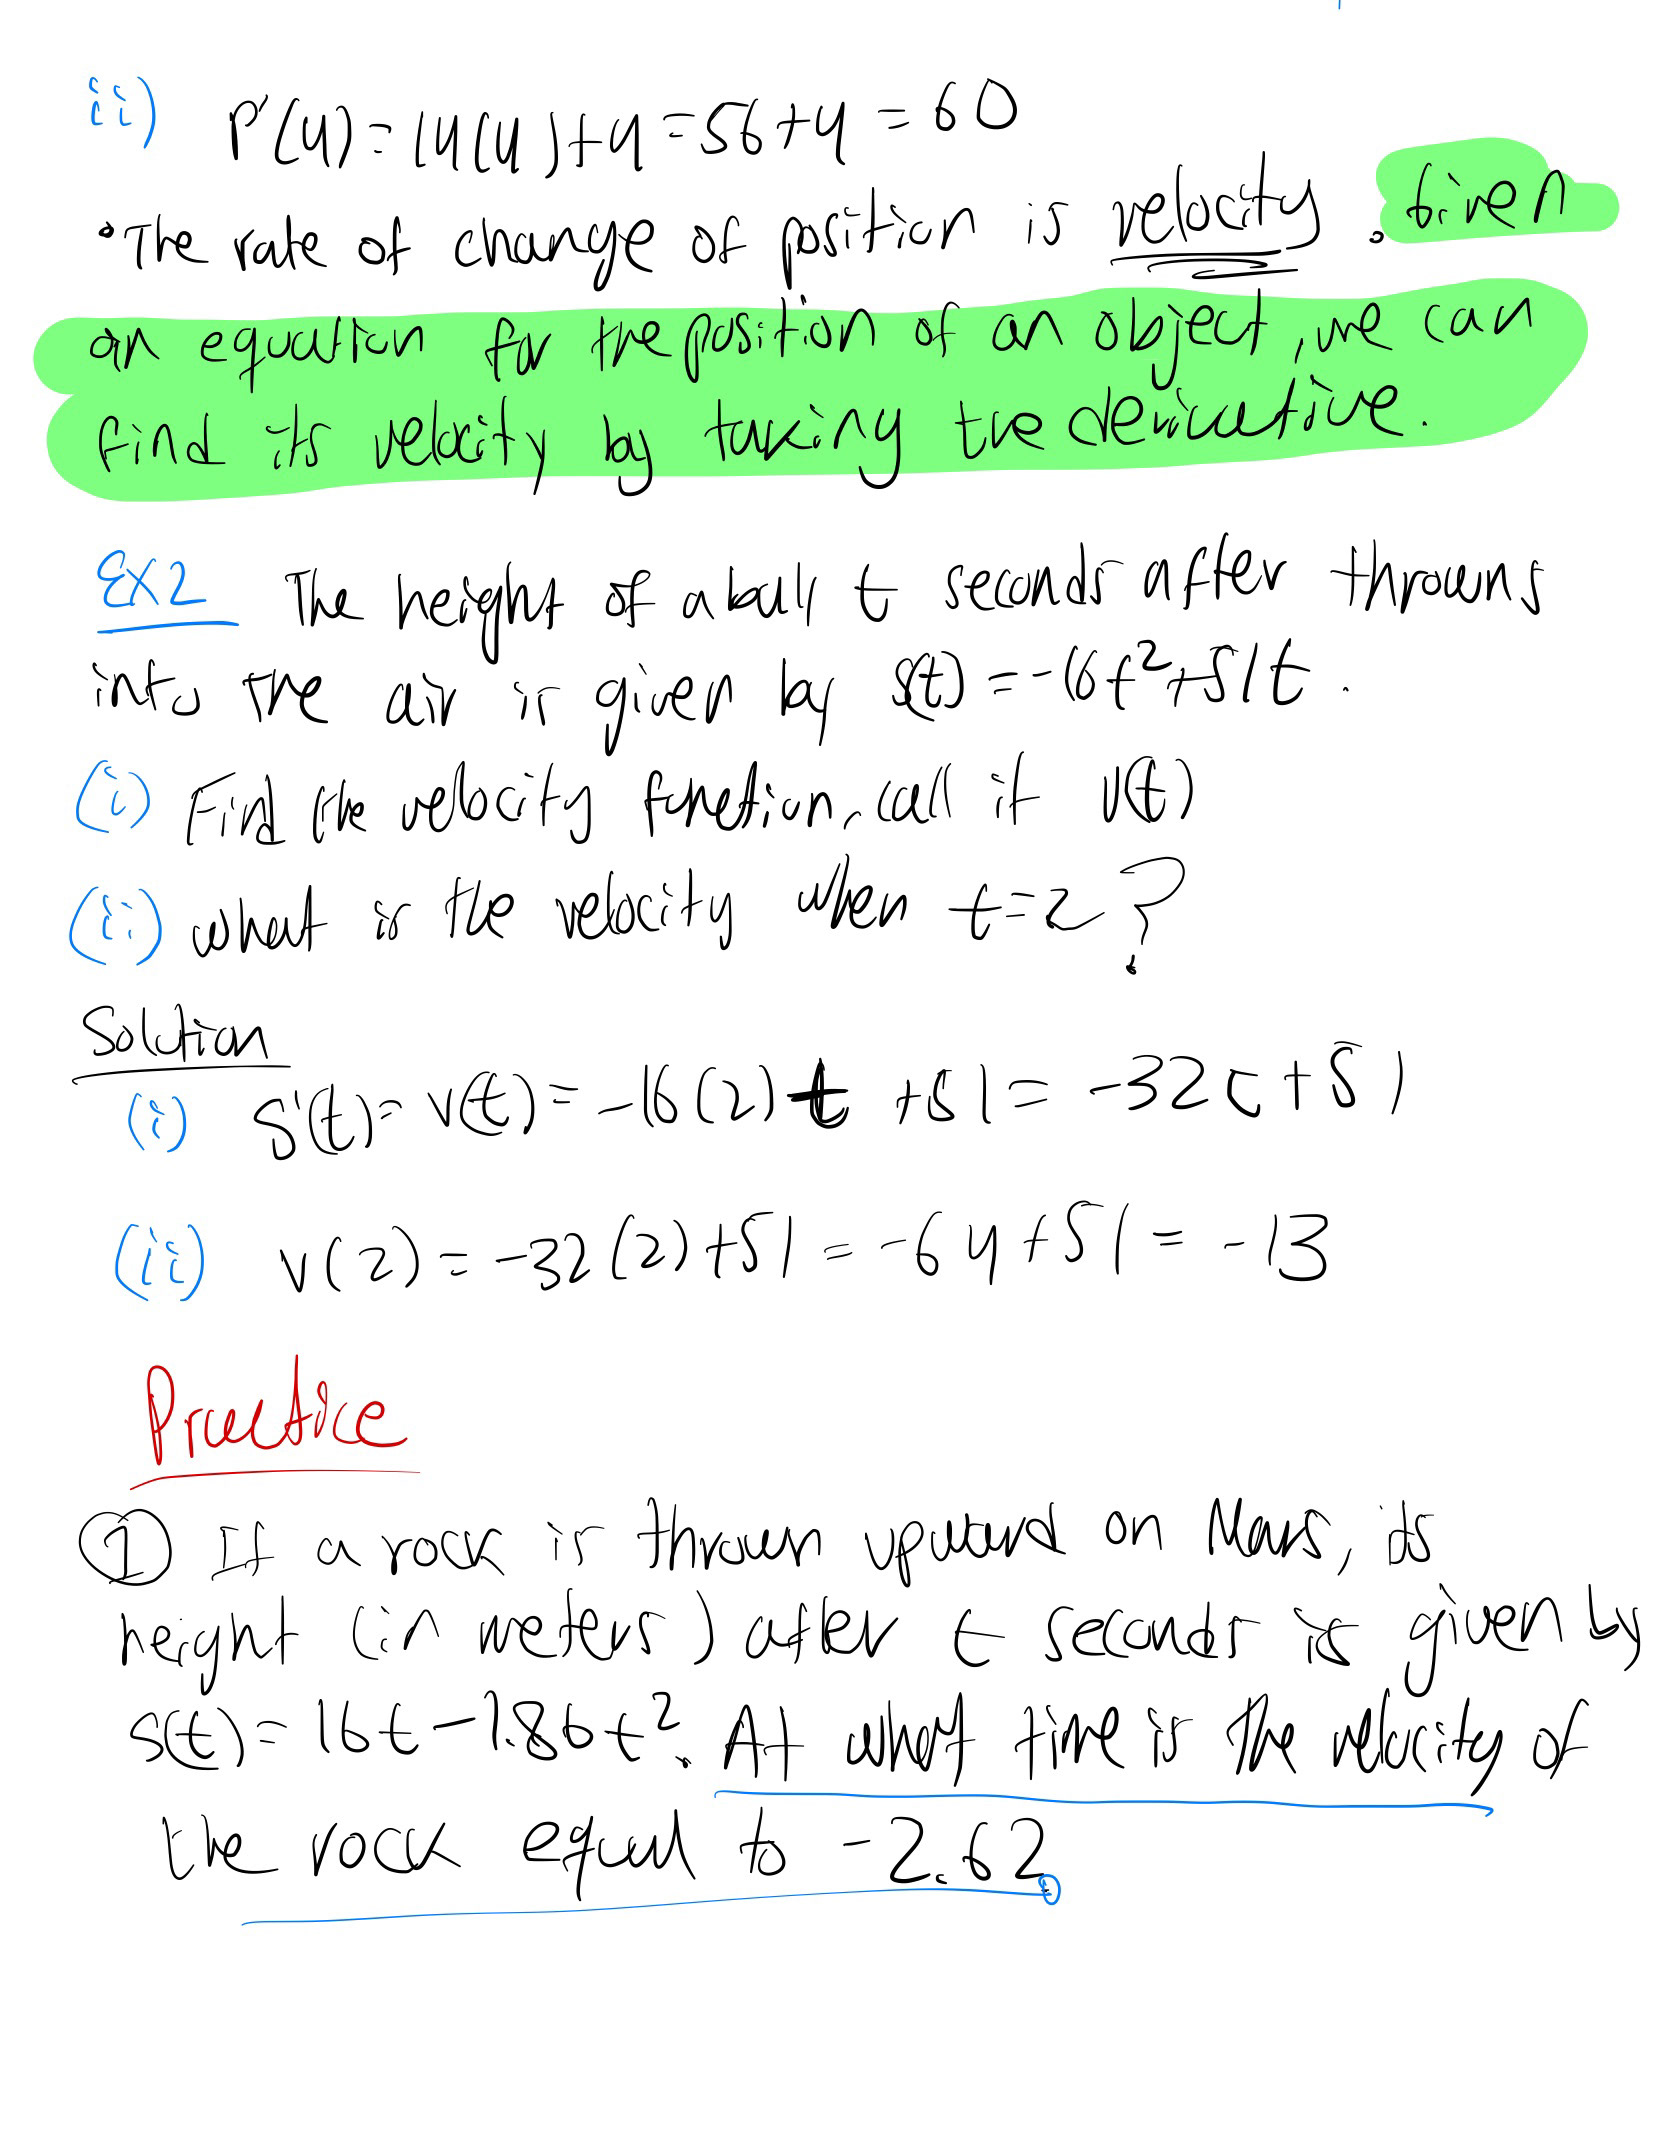 ii) P'(4) = 14(4)+4 = 56+4 = 60
• The rate of change of position is velocity. Given
an equation for the position of an object, we can
find its velocity by taking the derivative.
EX2 The height of a ball t seconds after throwns
into the air is given by s(t) = -16t²+51t.
(i) Find the velocity function, call it v(t)
(ii) what is the velocity when t=2?
Solution
(i) S'(t) = v(t) = -16(2)t +51 = -32t+51
(ii) v(2) = -32(2)+51 = -64+51 = -13
Practice
① If a rock is thrown upward on Mars, its
height (in meters) after t seconds is given by
s(t) = 16t-1.86t². At what time is the velocity of
the rock equal to -2.62.